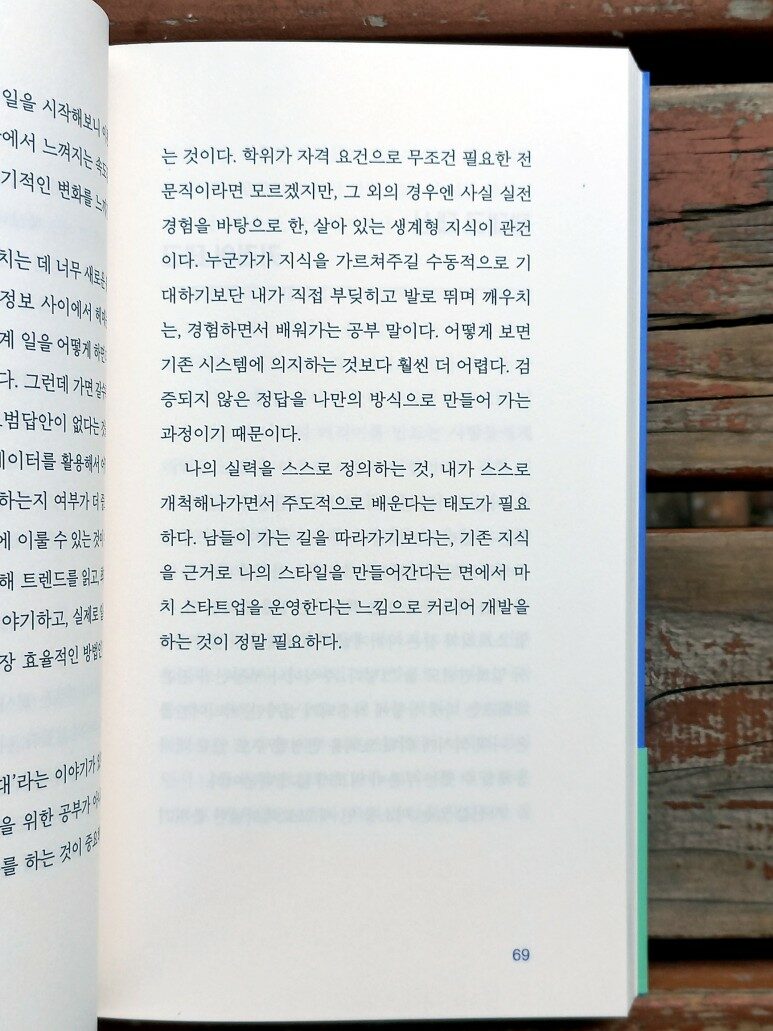 일을 시작해보니
에서 느껴지는 속도
기적인 변화를
치는 데 너무 새로운
정보 사이에서
계 일을 어떻게 하면
다. 그런데 가면 갈수
범답안이 없다는 것
이터를 활용해서
하는지 여부가 더
에 이룰 수 있는 것
해 트렌드를 읽고,
야기하고, 실제로
장 효율적인 방법인
대'라는 이야기가
을 위한 공부가
를 하는 것이 중요
는 것이다. 학위가 자격 요건으로 무조건 필요한 전
문직이라면 모르겠지만, 그 외의 경우엔 사실 실전
경험을 바탕으로 한, 살아 있는 생계형 지식이 관건
이다. 누군가가 지식을 가르쳐주길 수동적으로 기
대하기보단 내가 직접 부딪히고 발로 뛰며 깨우치
는, 경험하면서 배워가는 공부 말이다. 어떻게 보면
기존 시스템에 의지하는 것보다 훨씬 더 어렵다. 검
증되지 않은 정답을 나만의 방식으로 만들어 가는
과정이기 때문이다.
나의 실력을 스스로 정의하는 것, 내가 스스로
개척해나가면서 주도적으로 배운다는 태도가 필요
하다. 남들이 가는 길을 따라가기보다는, 기존 지식
을 근거로 나의 스타일을 만들어간다는 면에서 마
치 스타트업을 운영한다는 느낌으로 커리어 개발을
하는 것이 정말 필요하다.
69